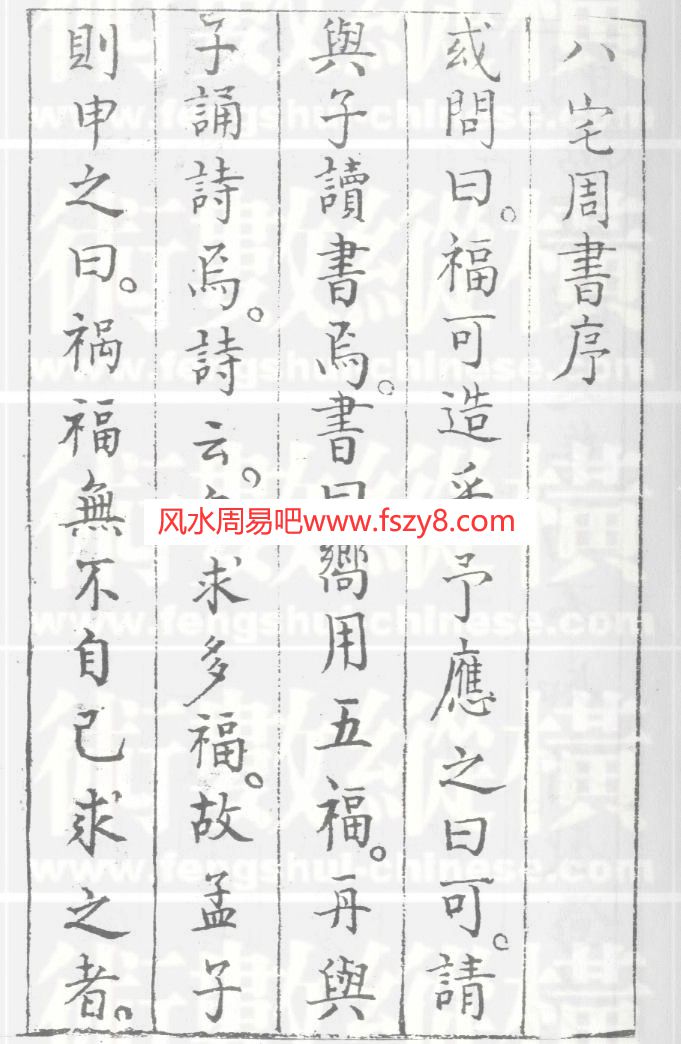 八宅周書序
或問曰。福可造乎予應之曰可。請
與子讀書焉。書曰嚮用五福。再與
子誦詩焉。詩云。求多福。故孟子
則申之曰。禍福無不自己求之者。
风水周易吧www.fszy8.com
術數縱橫
www.fengshui-chinese.com
術數縱橫
www.fengshui-chinese.com
術數縱橫
www.fengshui-chinese.com
術數縱橫
www.fengshui-chinese.com
術數縱橫